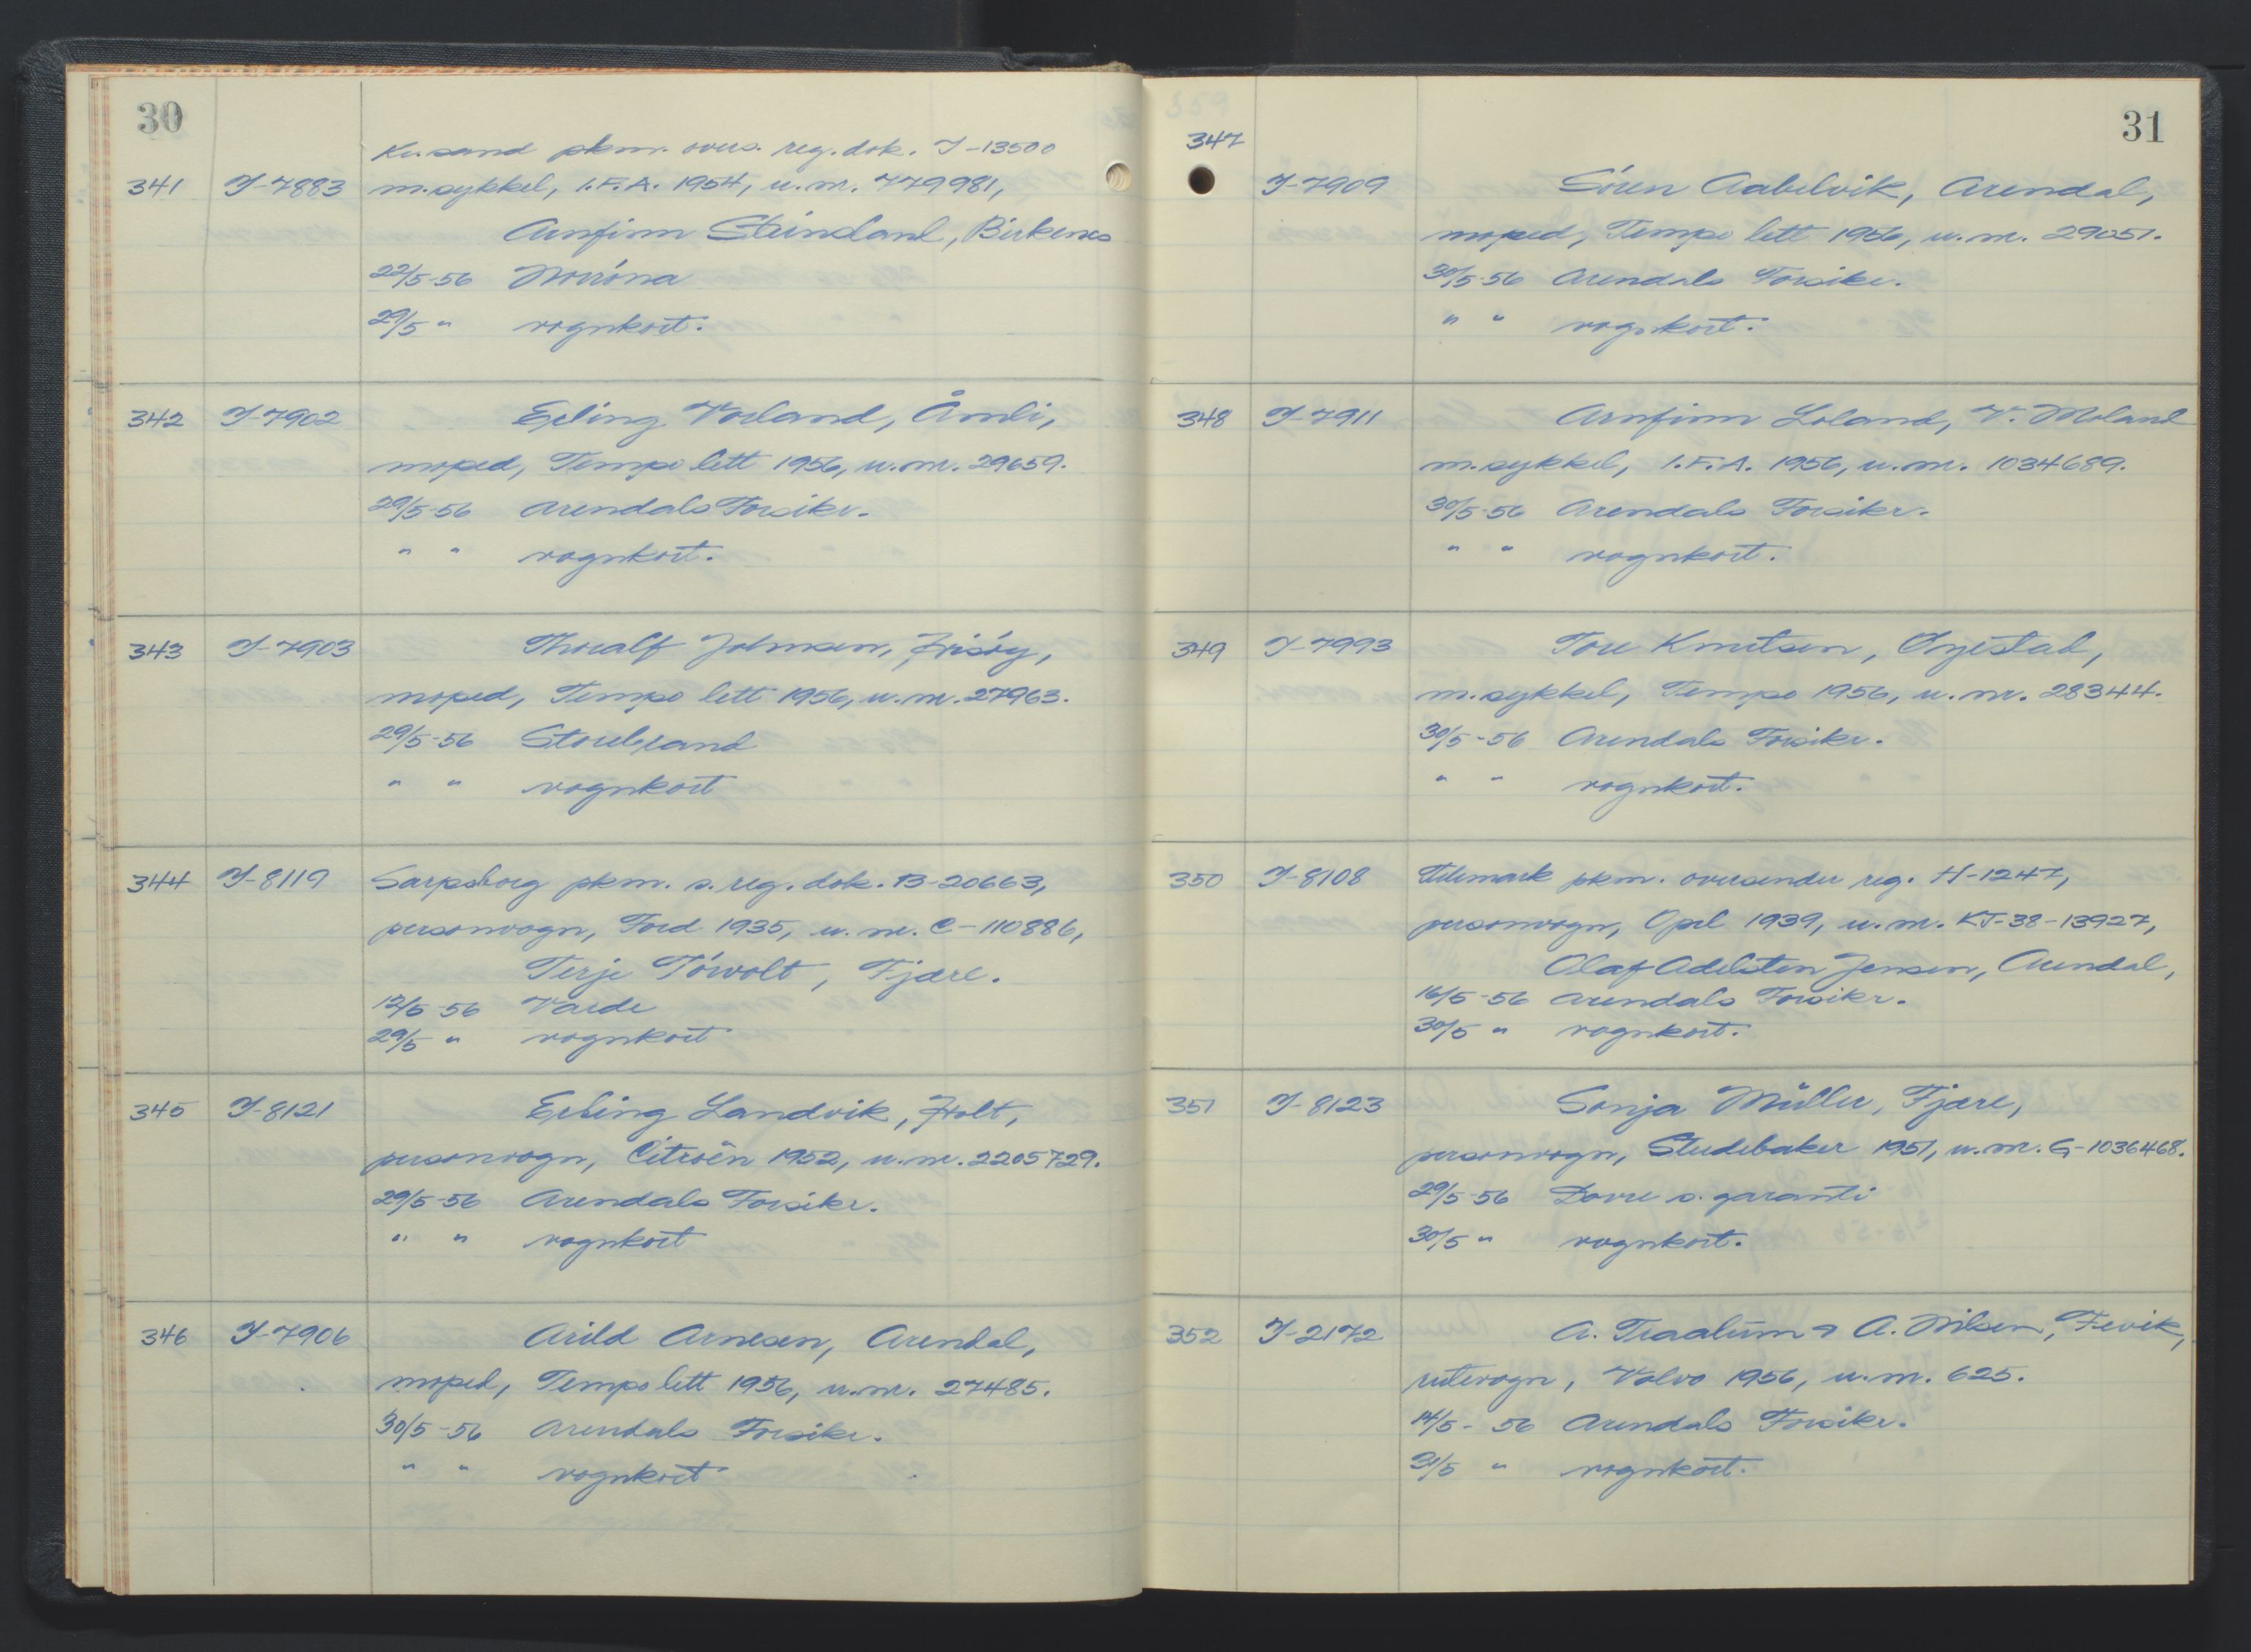 30
Kr.sand pkm. overs. reg. dok. I-13500
341 I-7883 m.sykkel, I.F.A. 1954, u.nr. 779981,
Arnfinn Steindand, Birkenes
22/5-56 Norröna
29/5 " vognkort.
342 I-7902 Erling Vorland, Åmli,
moped, Tempo lett 1956, u.nr. 29659.
29/5-56 Arendals Forsikr.
" " vognkort.
343 I-7903 Thoralf Johnsen, Hisöy,
moped, Tempo lett 1956, u.nr. 27963.
29/5-56 Storebrand
" " vognkort
344 I-8119 Sarpsborg pkm. s. reg. dok. B-20663,
personvogn, Ford 1935, u.nr. C-110886,
Terje Törvolt, Fjære.
12/5-56 Varde
29/5 " vognkort
345 I-8121 Erling Landvik, Holt,
personvogn, Citroën 1952, u.nr. 2205729.
29/5-56 Arendals Forsikr.
" " vognkort
346 I-7906 Arild Arnesen, Arendal,
moped, Tempo lett 1956, u.nr. 27485.
30/5-56 Arendals Forsikr.
" " vognkort
31
347
I-7909 Sören Aabelvik, Arendal,
moped, Tempo lett 1956, u.nr. 29051.
30/5-56 Arendals Forsikr.
" " vognkort.
348 I-7911 Arnfinn Loland, V. Moland
m.sykkel, I.F.A. 1956, u.nr. 1034689.
30/5-56 Arendals Forsikr.
" " vognkort.
349 I-7993 Tore Knutsen, Öyestad,
m.sykkel, Tempo 1956, u.nr. 28344.
30/5-56 Arendals Forsikr.
" " vognkort.
350 I-8108 Telemark pkm. oversender reg. H-1247,
personvogn, Opel 1939, u.nr. KJ-38-13927,
Olaf Adelsten Jensen, Arendal,
16/5-56 Arendals Forsikr.
30/5 " vognkort.
351 I-8123 Sonja Müller, Fjære,
personvogn, Studebaker 1951, u.nr. G-1036468.
29/5-56 Dovre s. garanti
30/5 " vognkort.
352 I-2172 A. Traalum & A. Nilsen, Fevik,
rutevogn, Volvo 1956, u.nr. 625.
14/5-56 Arendals Forsikr.
31/5 " vognkort.